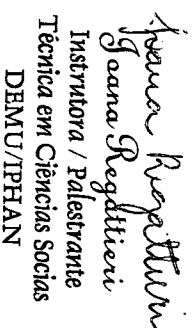 Joana Regattieri
Joana Regattieri
Instrutora / Palestrante
Técnica em Ciências Socias
DEMU/IPHAN